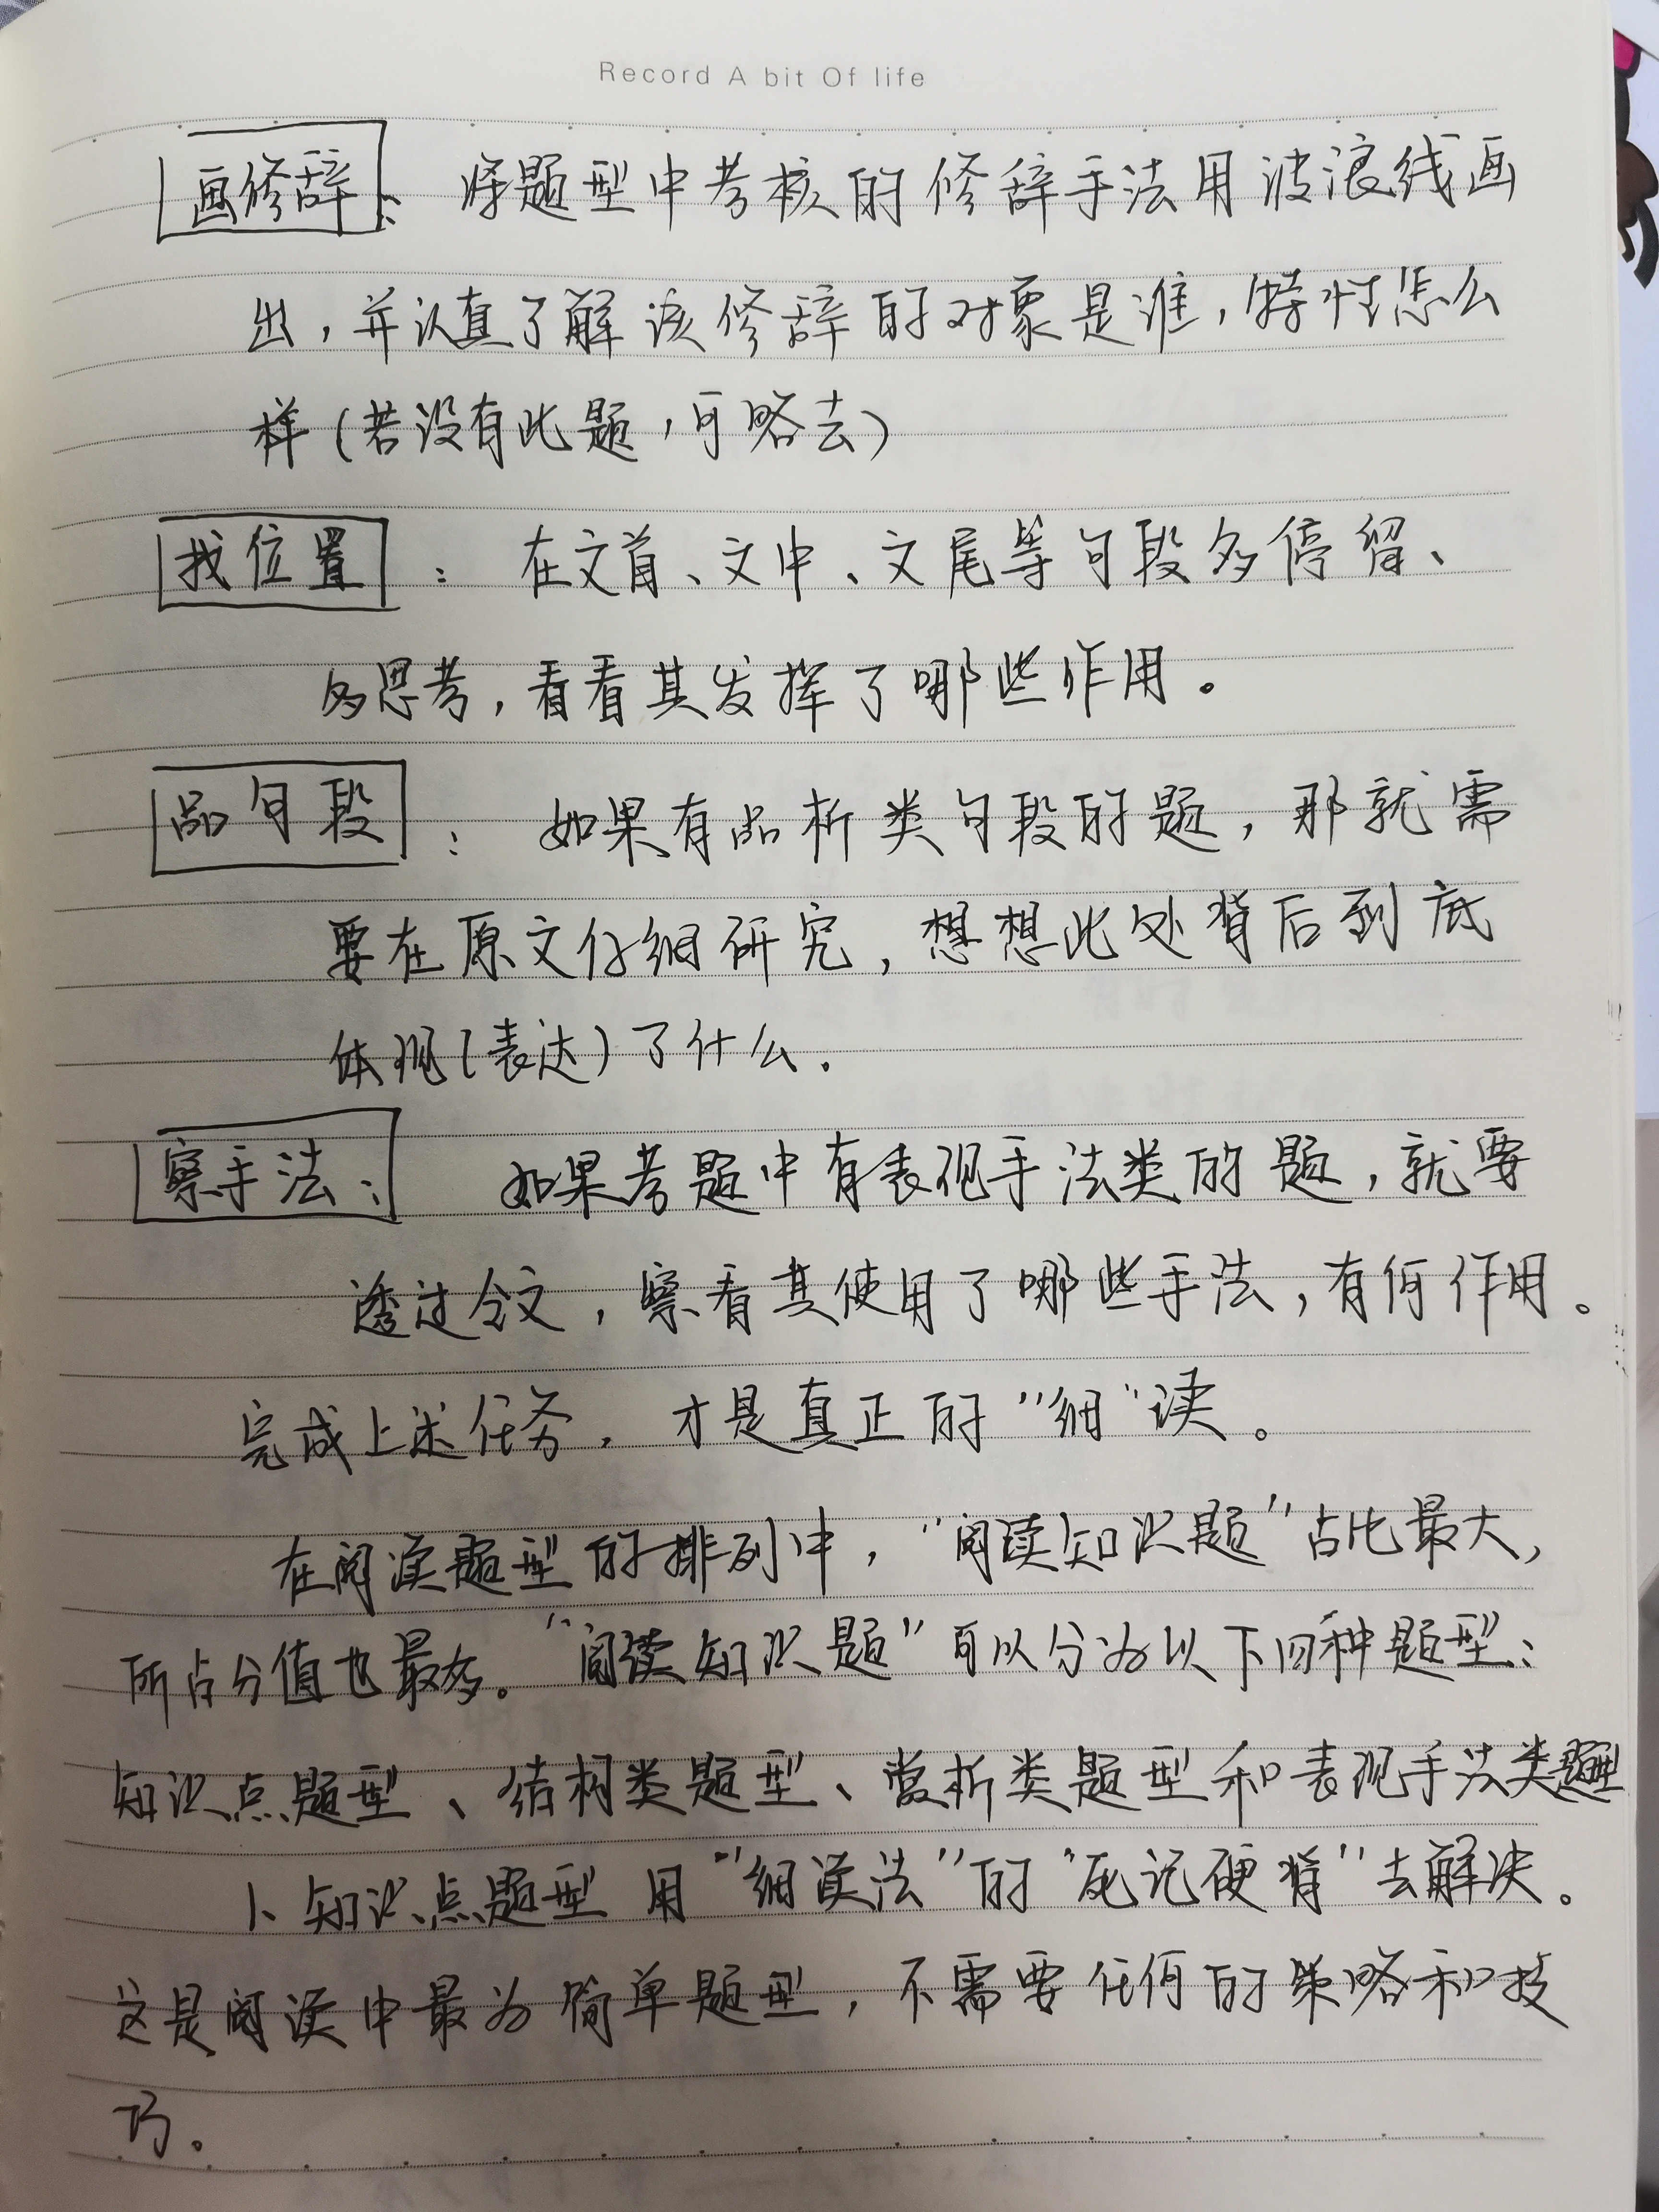 Record A bit Of life
画修辞：将题型中考核的修辞手法用波浪线画
出，并认真了解该修辞的对象是谁，特性怎么
样（若没有此题，可略去）
找位置：在文首、文中、文尾等句段多停留、
多思考，看看其发挥了哪些作用。
品句段：如果有品析类句段的题，那就需
要在原文仔细研究，想想此处背后到底
体现（表达）了什么.
察手法：如果考题中有表现手法类的题，就要
透过全文，察看其使用了哪些手法，有何作用。
完成上述任务，才是真正的“细”读。
在阅读题型的排列中，“阅读知识题”占比最大，
所占分值也最多。“阅读知识题”可以分为以下四种题型：
知识点题型、结构类题型、赏析类题型和表现手法类题型
1、知识点题型 用“细读法”的“死记硬背”去解决。
这是阅读中最为简单题型，不需要任何的策略和技
巧。